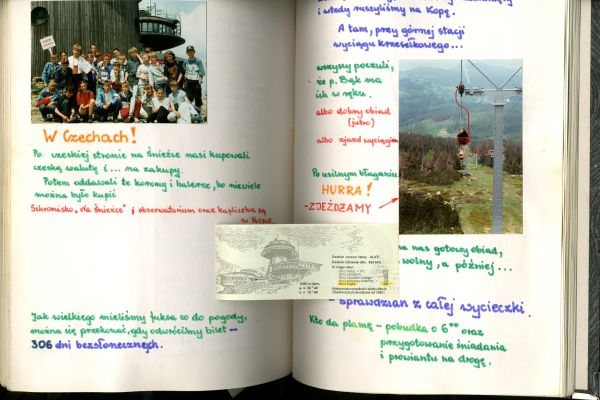 W Czechach!
Po czeskiej stronie na Śnieżce nasi kupowali
czeską walutę i... na zakupy.
Potem oddawali te korony i halerze, bo niewiele
można było kupić
Schronisko "Na Śnieżce" i obserwatorium oraz kapliczka są
w Polsce.
Jak wielkiego mieliśmy fuksa co do pogody,
można się przekonać, gdy odwrócimy bilet -
306 dni bezsłonecznych.
i wtedy ruszyliśmy na Kopę.
A tam, przy górnej stacji
wyciągu krzesełkowego...
wszyscy poczuli,
że p. Bąk ma
ich w ręku.
albo dobry obiad
(jutro)
albo zjazd wyciągiem
Po usilnym błaganiu
HURRA!
-ZJEŻDŻAMY
na nas gotowy obiad,
wolny, a później...
- Sprawdzian z całej wycieczki.
Kto da plamę - pobudka o 6⁰⁰ oraz
przygotowanie śniadania
i prowiantu na drogę.